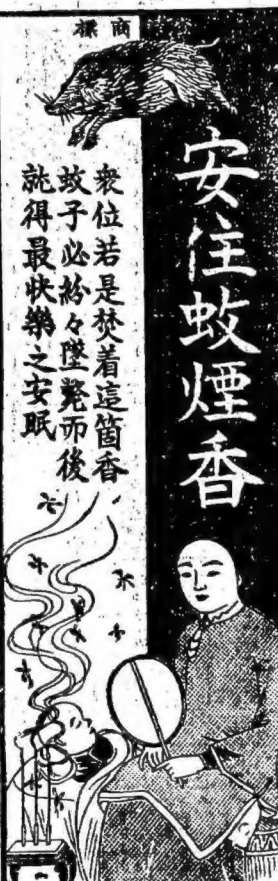 商標
安住蚊煙香
衆位若是焚着這箇香
蚊子必紛々墜斃而後
就得最快樂之安眠